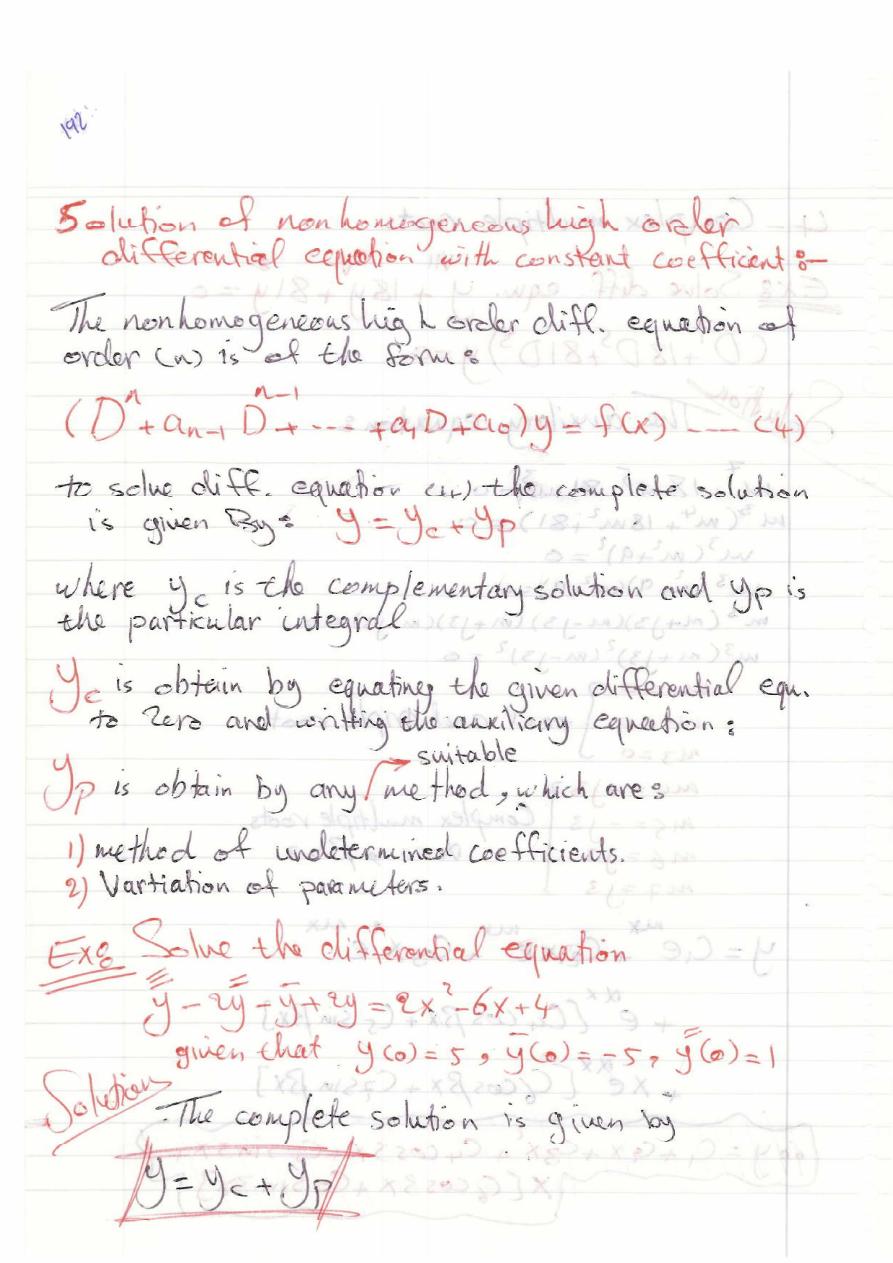 192
Solution of nonhomogeneous high order
differential equation with constant coefficient :-
The nonhomogeneous high order diff. equation of
order (n) is of the form:
(Dⁿ + aₙ₋₁ Dⁿ⁻¹ + --- + a₁D + a₀) y = f(x) ---- (4)
to solve diff. equation (4) the complete solution
is given By: y = y_c + y_p
where y_c is the complementary solution and y_p is
the particular integral.
y_c is obtain by equating the given differential equ.
to Zero and writting the auxiliary equation:
suitable
y_p is obtain by any method, which are:
1) method of undetermined coefficients.
2) Vartiation of parameters.
Ex: Solve the differential equation
y‴ - 2y″ - y′ + 2y = 2x² - 6x + 4
given that y(0) = 5, y′(0) = -5, y″(0) = 1
Solution
The complete solution is given by
y = y_c + y_p